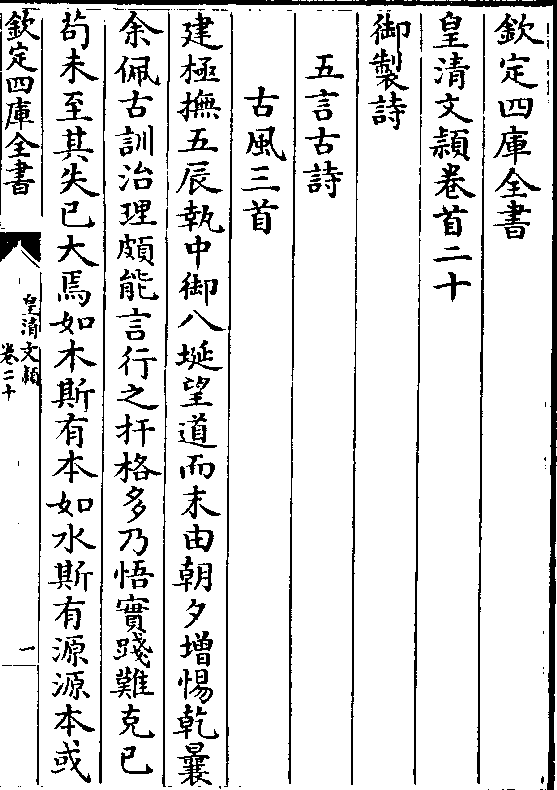 欽定四庫全書
皇清文穎卷首二十
御製詩
五言古詩
古風三首
建極撫五辰執中御八埏望道而末由朝夕增惕乾曩
余佩古訓治理頗能言行之扞格多乃悟實踐難克已
茍未至其失已大焉如木斯有本如水斯有源源本或
欽定四庫全書
皇清文穎
卷二十
一